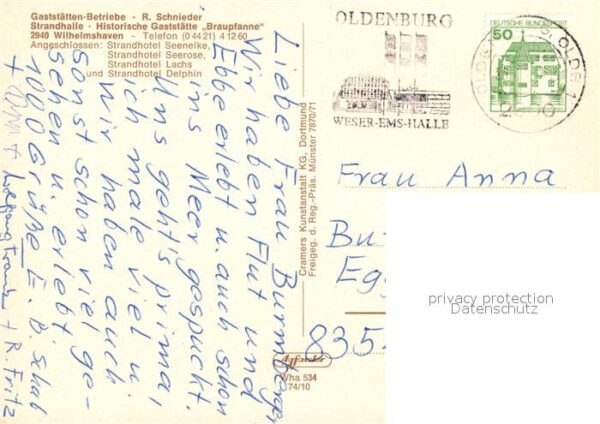 Gaststätten-Betriebe - R. Schnieder
Strandhalle - Historische Gaststätte "Braupfanne"
2940 Wilhelmshaven - Telefon (0 44 21) 4 12 60
Angeschlossen: Strandhotel Seenelke,
Strandhotel Seerose,
Strandhotel Lachs
und Strandhotel Delphin
Liebe Frau
Wir haben Flut und
Ebbe erlebt u. auch schon
ins Meer gespuckt.
Uns geht's prima,
ich male viel u.
wir haben auch
sonst schon viel ge-
sehen u. erlebt
1000 Grüße E. B.
+ + R. Fritz
Cramers Kunstanstalt KG, Dortmund
Freigeg. d. Reg.-Präs. Münster 7870/71
Wha 534
74/10
OLDENBURG
WESER-EMS-HALLE
DEUTSCHE BUNDESPOST
50
Frau Anna
Bu
Egg
835
privacy protection
Datenschutz